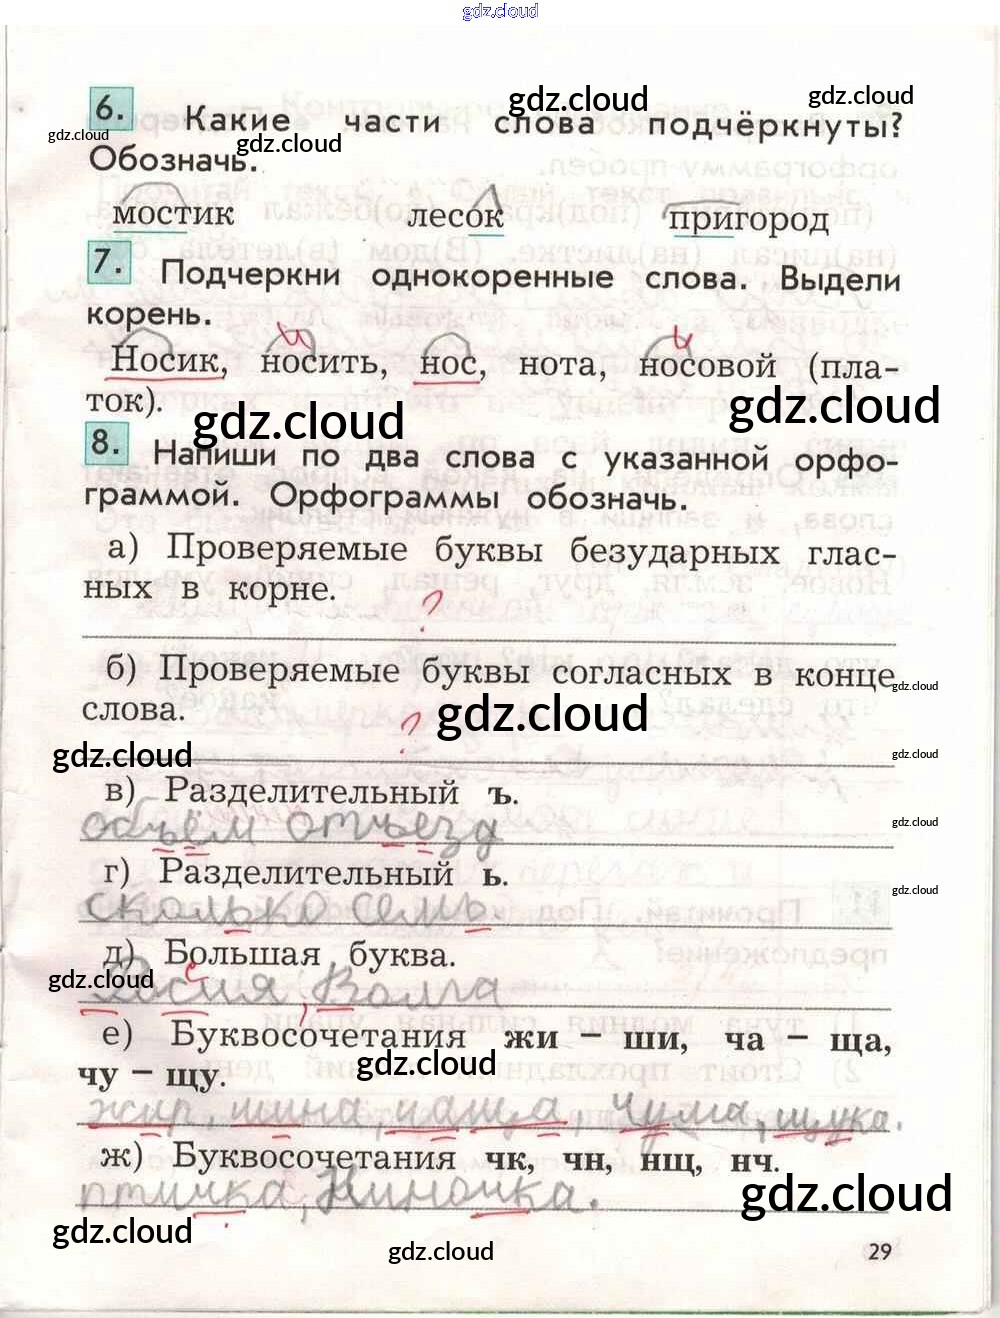 gdz.cloud
gdz.cloud
gdz.cloud
6. Какие части слова подчёркнуты?
gdz.cloud
gdz.cloud
Обозначь.
мостик лесок пригород
7. Подчеркни однокоренные слова. Выдели
корень.
и и
Носик, носить, нос, нота, носовой (пла-
ток).
gdz.cloud
gdz.cloud
8. Напиши по два слова с указанной орфо-
граммой. Орфограммы обозначь.
а) Проверяемые буквы безударных глас-
ных в корне.
?
б) Проверяемые буквы согласных в конце
gdz.cloud
слова.
gdz.cloud
?
gdz.cloud
gdz.cloud
в) Разделительный ъ.
объём отъезд
gdz.cloud
г) Разделительный ь.
gdz.cloud
сколько семь.
д) Большая буква.
gdz.cloud
с
Росия, Волга
е) Буквосочетания жи – ши, ча – ща,
gdz.cloud
чу – щу.
жир, шина, чаща, чума, щука.
ж) Буквосочетания чк, чн, нщ, нч.
gdz.cloud
птичка, Ниночка.
gdz.cloud
gdz.cloud
29